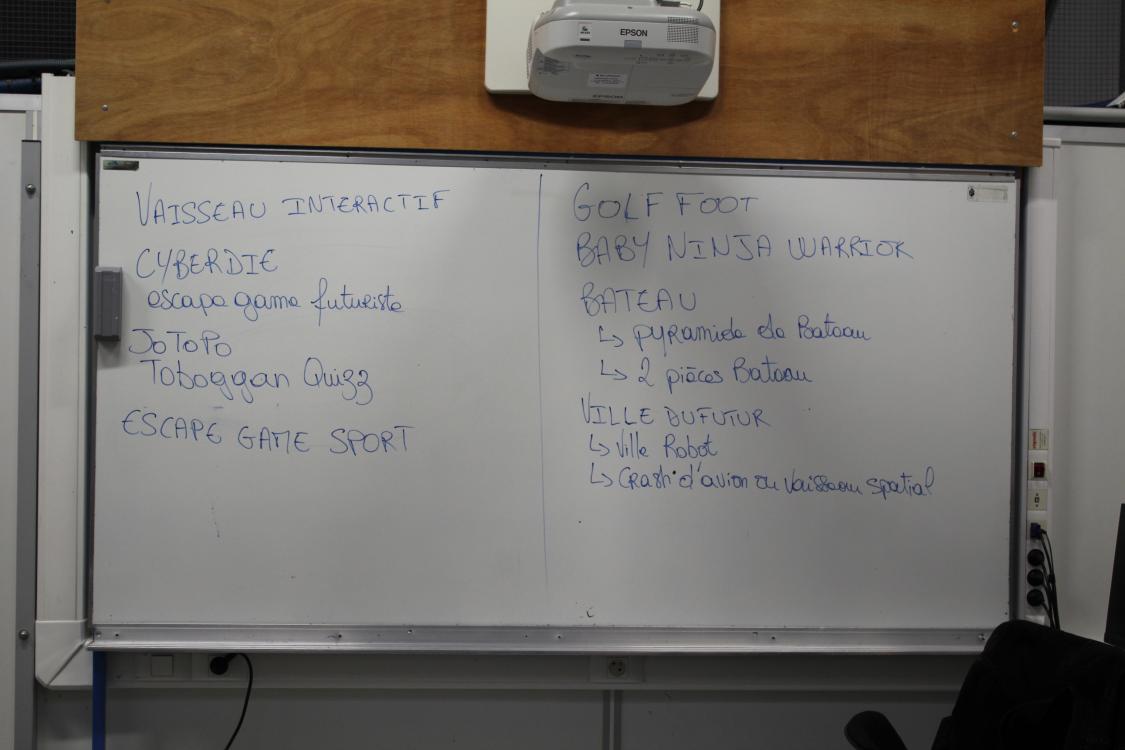 EPSON
EPSON
VAISSEAU INTERACTIF
CYBERDIE
escape game futuriste
JOTOPO
Toboggan Quizz
ESCAPE GAME SPORT
GOLF FOOT
BABY NINJA WARRIOR
BATEAU
↳ pyramide de Bateau
↳ 2 pièces Bateau
VILLE DU FUTUR
↳ Ville Robot
↳ Crash d'avion ou vaisseau spatial